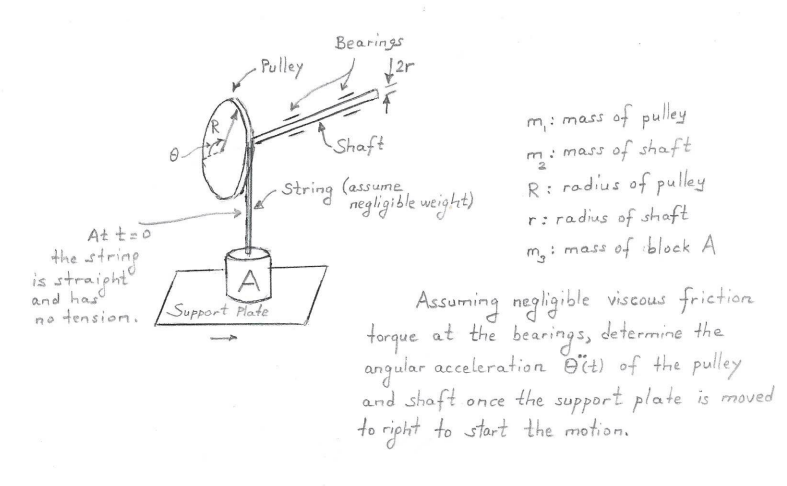 Bearings
Pulley
2r
R
θ
Shaft
String (assume
negligible weight)
At t=0
the string
is straight
and has
no tension.
A
Support Plate
m₁: mass of pulley
m₂: mass of shaft
R: radius of pulley
r: radius of shaft
m₃: mass of block A
Assuming negligible viscous friction
torque at the bearings, determine the
angular acceleration θ̈(t) of the pulley
and shaft once the support plate is moved
to right to start the motion.